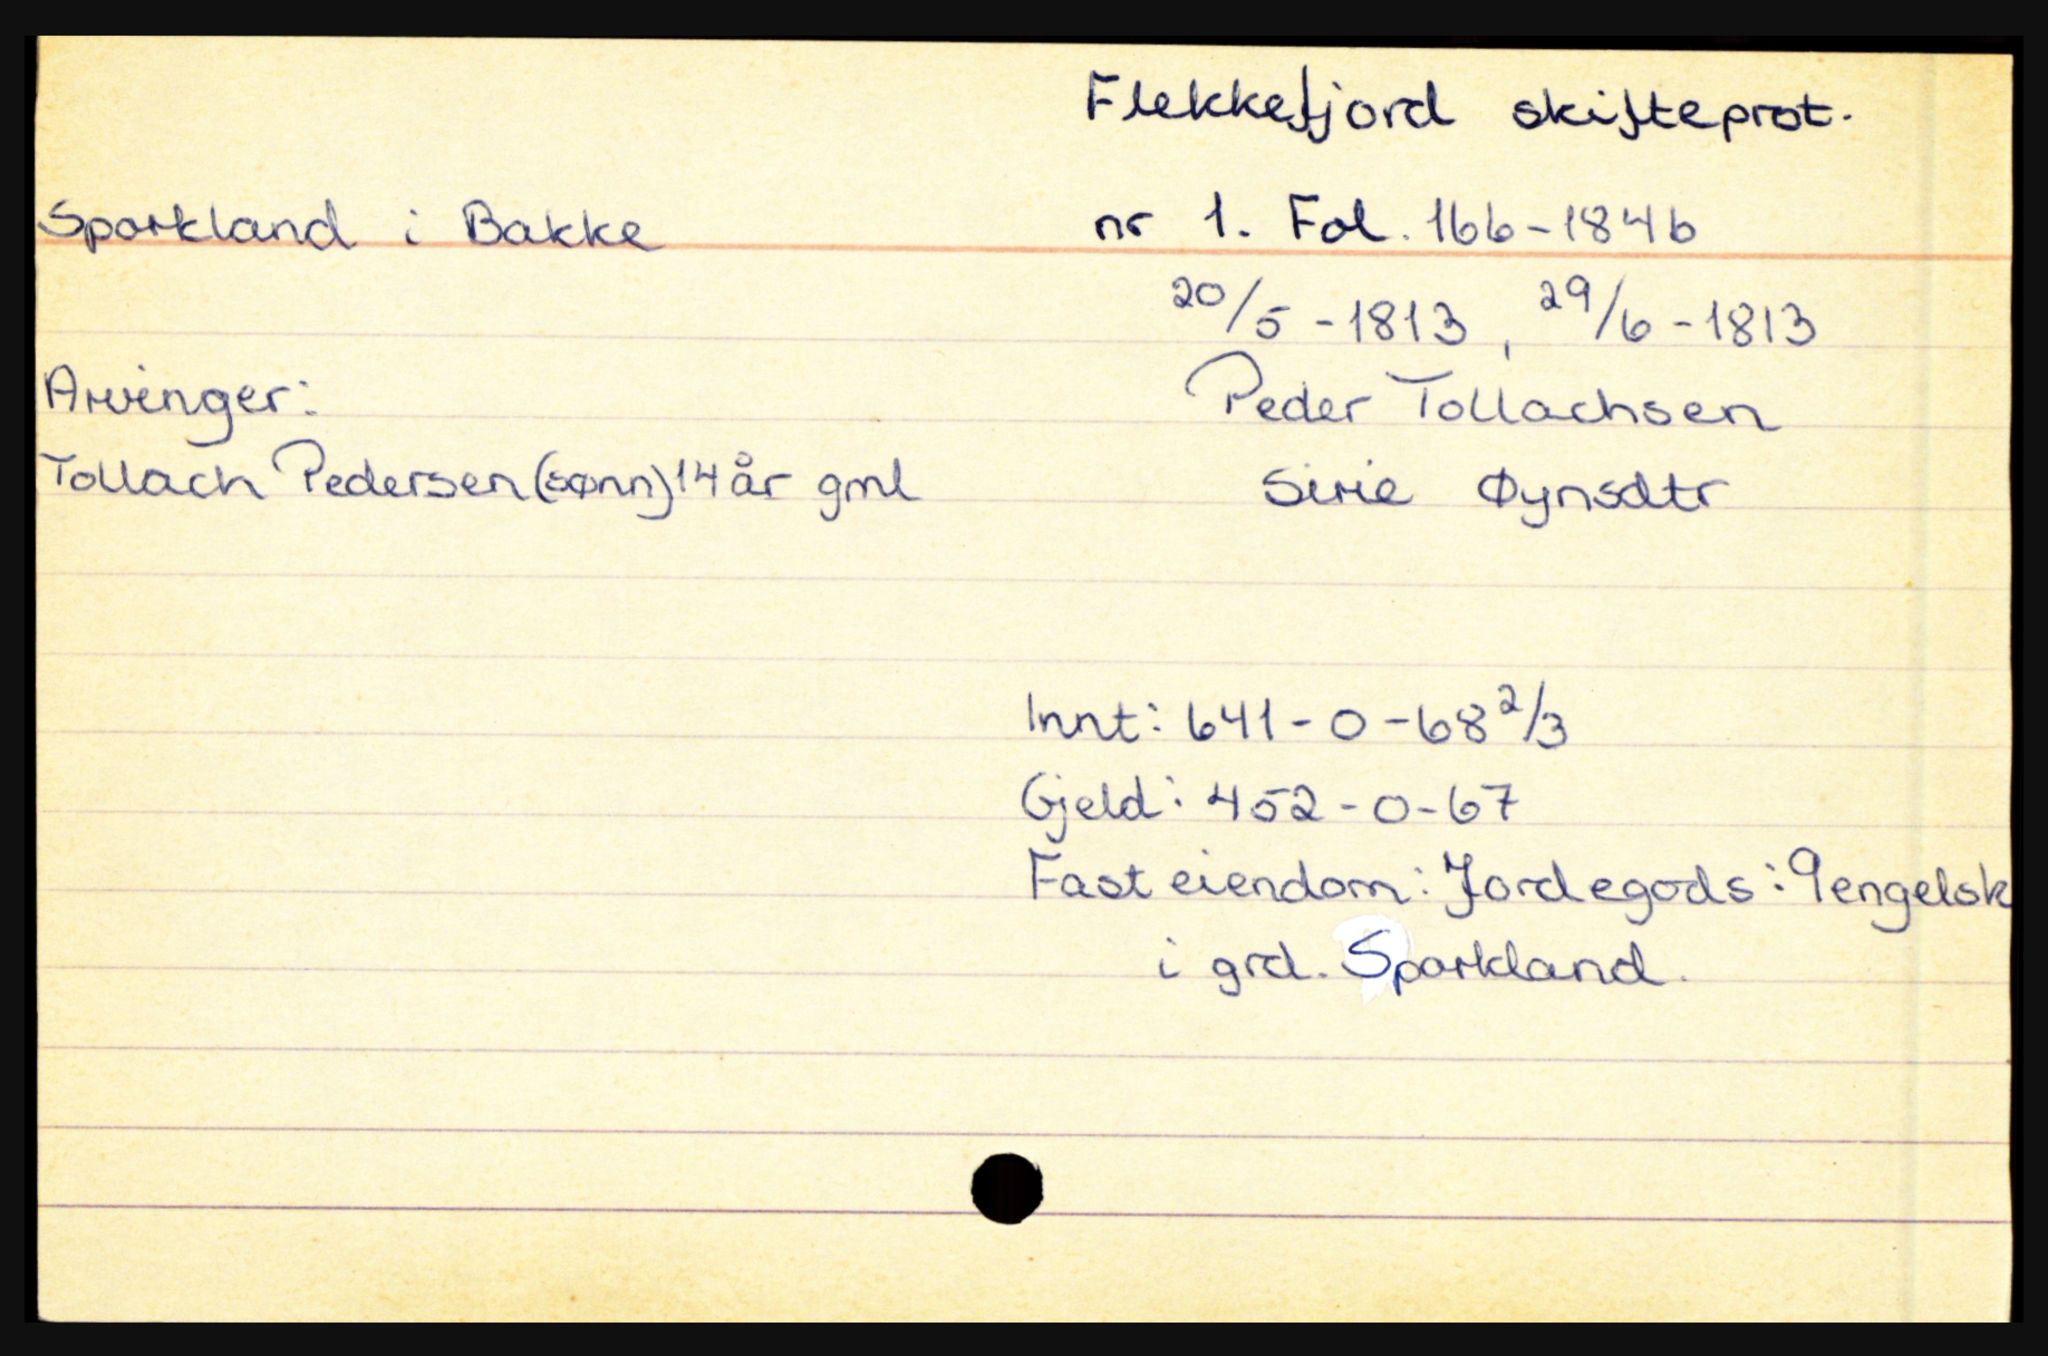 Flekkefjord skifteprot.
Sporkland i Bakke nr 1. Fol. 166-184b
20/5-1813, 29/6-1813
Arvinger: Peder Tollachsen
Tollach Pedersen (sønn) 14 år gml Sirie Øynsdtr
Innt: 641-0-68 2/3
Gjeld: 452-0-67
Fast eiendom: Jordegods: 9 engelsk
i grd. Sporkland.